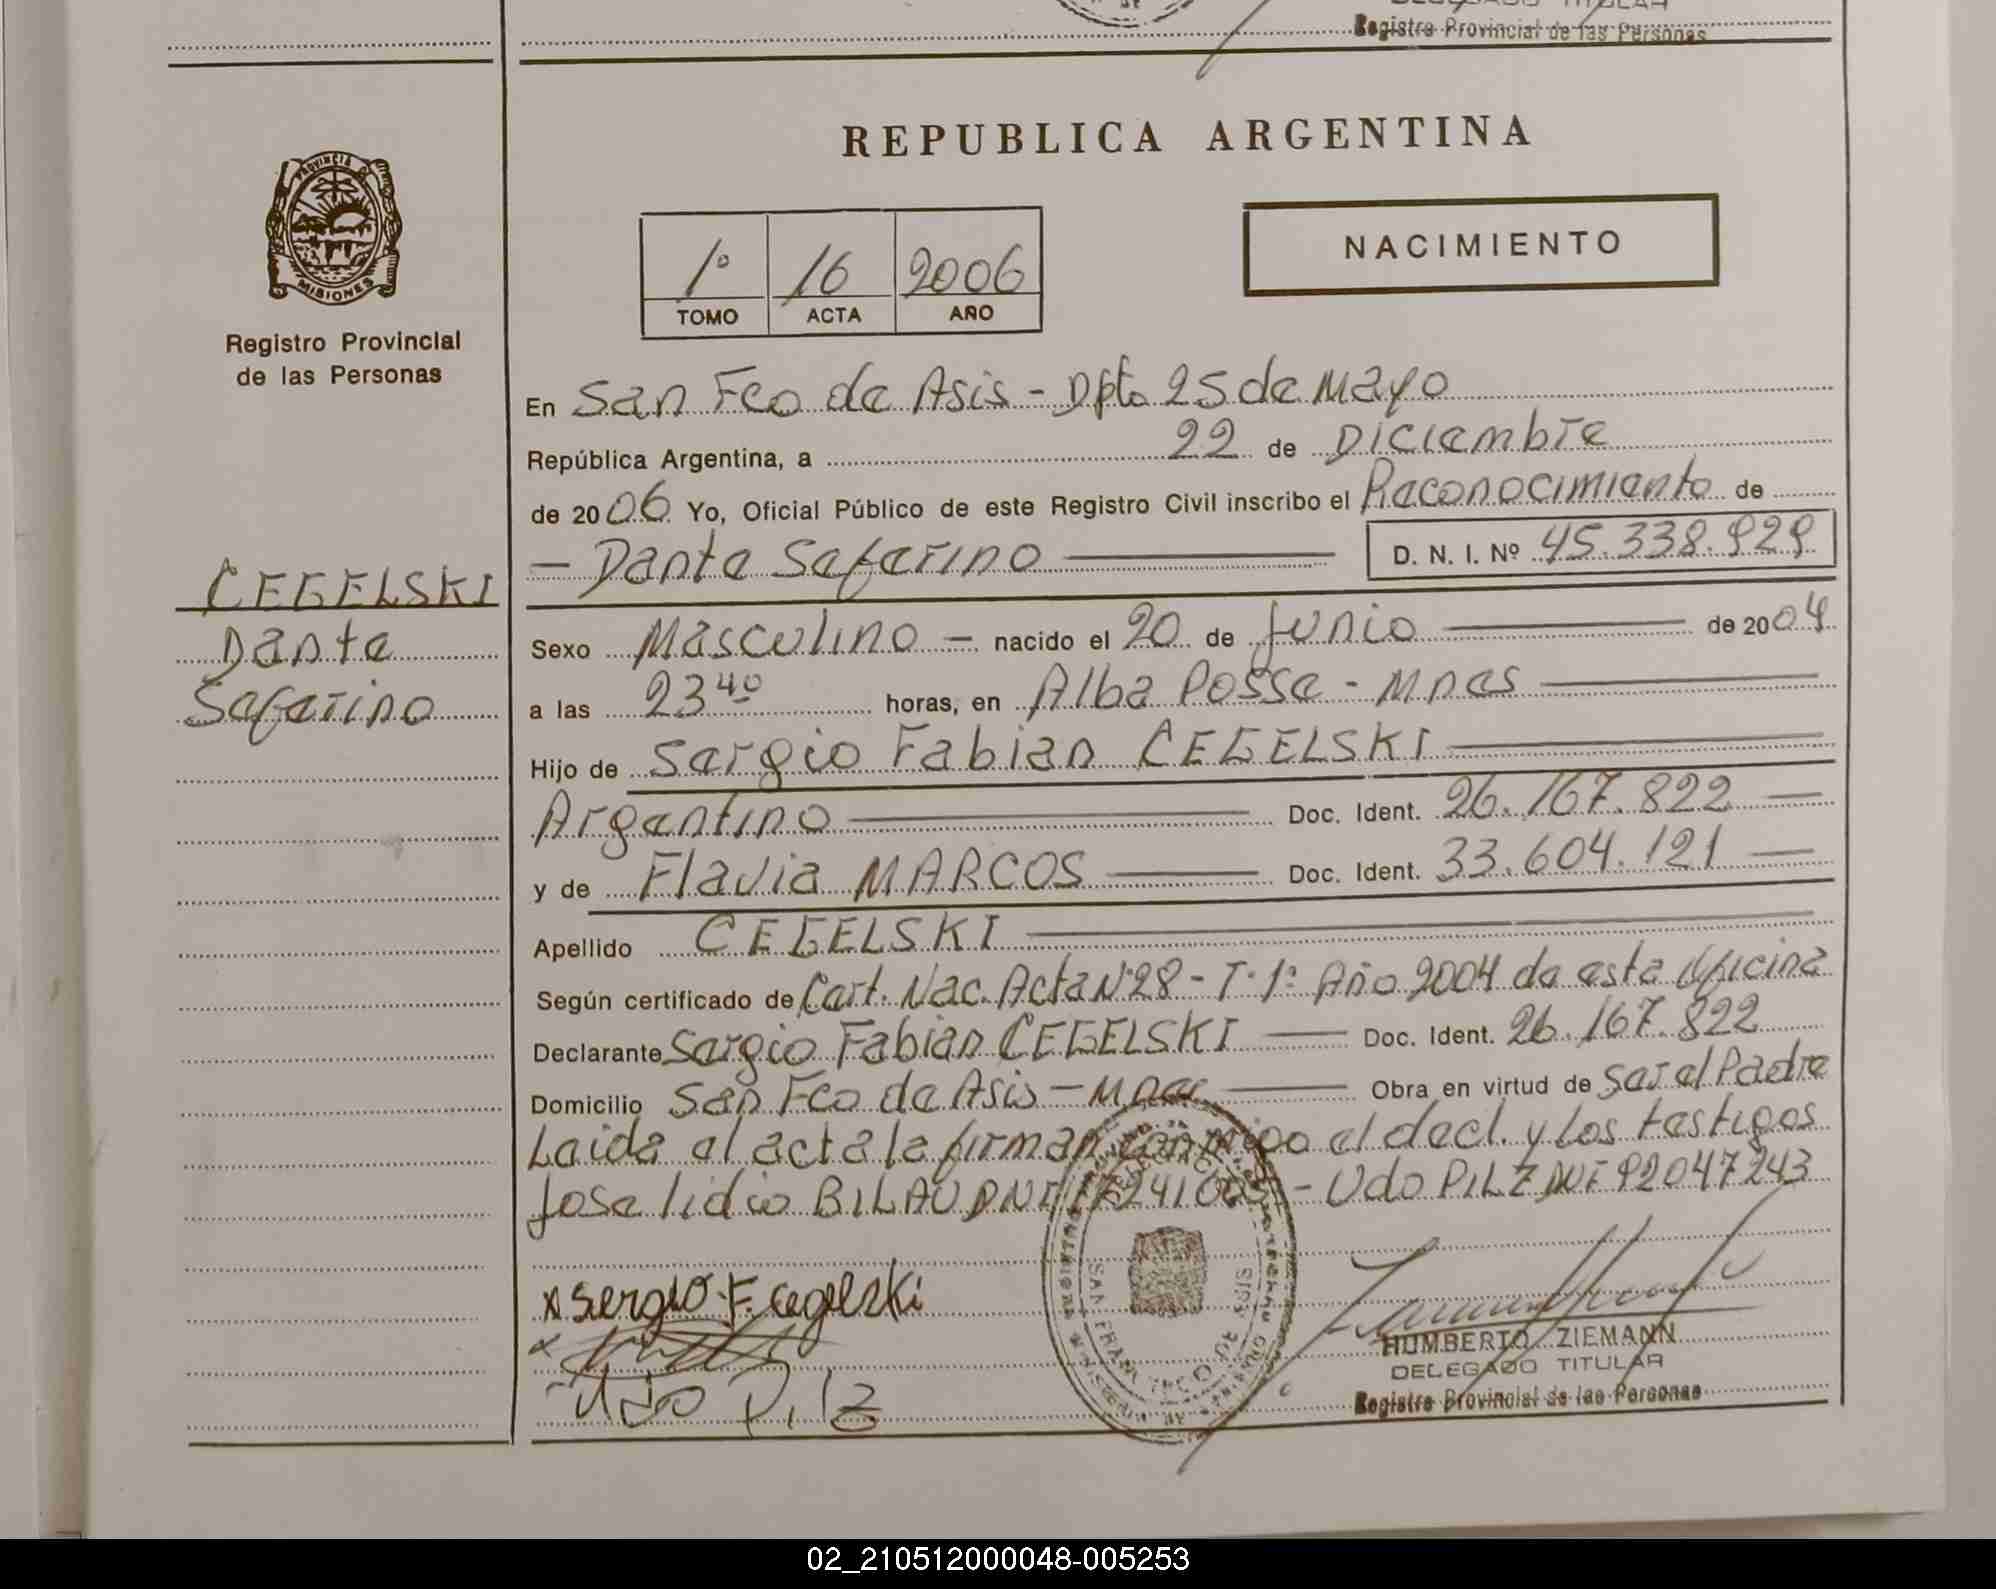 Registro Provincial de las Personas
REPUBLICA ARGENTINA
PROVINCIA DE
MISIONES
Registro Provincial
de las Personas
1º 16 2006
TOMO ACTA AÑO
NACIMIENTO
En San Fco de Asis - Dpto 25 de Mayo
República Argentina, a 22 de Diciembre
de 2006 Yo, Oficial Público de este Registro Civil inscribo el Reconocimiento de
- Dante Seferino D. N. I. Nº 45.338.929
CEGELSKI
Dante
Seferino
Sexo Masculino - nacido el 20 de Junio de 2004
a las 23 40 horas, en Alba Posse - Mnes
Hijo de Sergio Fabian CEGELSKI
Argentino Doc. Ident. 26.167.822
y de Flavia MARCOS Doc. Ident. 33.604.121
Apellido CEGELSKI
Según certificado de Cert. Nac. Acta Nº 28 - Tº 1º Año 2004 de esta Oficina
Declarante Sergio Fabian CEGELSKI Doc. Ident. 26.167.822
Domicilio San Fco de Asis - Mnes Obra en virtud de ser el Padre
Leida el acta la firman conmigo el decl. y los testigos
Jose lidio BILAU DNI - Udo PILZ DNI 92047243
x Sergio F. cegelski
Udo Pilz
SAN FRANCISCO DE ASIS
HUMBERTO ZIEMANN
DELEGADO TITULAR
Registro Provincial de las Personas
02_210512000048-005253